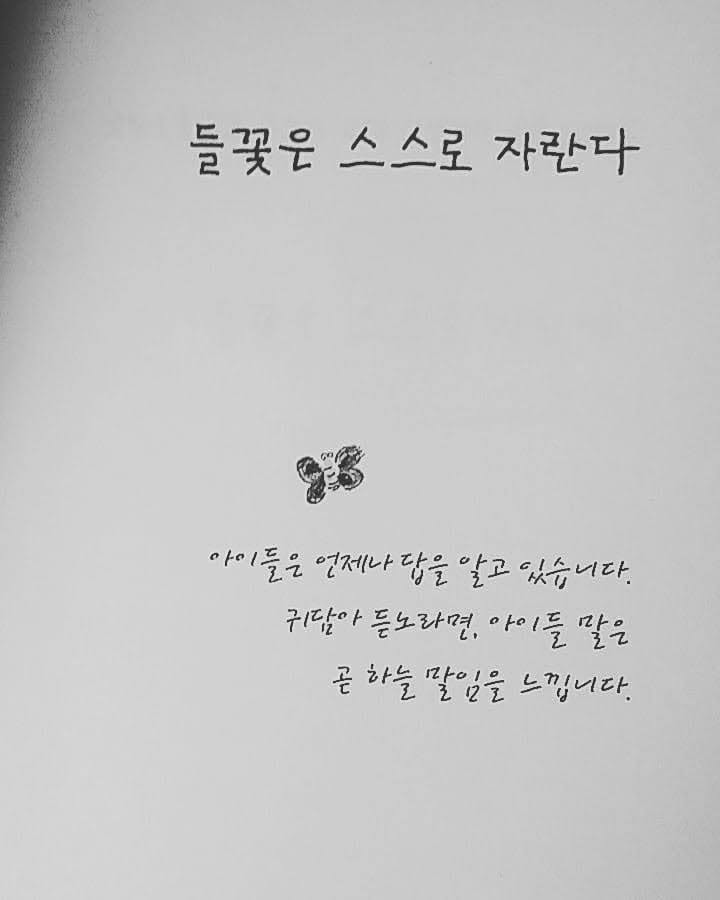 들꽃은 스스로 자란다
아이들은 언제나 답을 알고 있습니다.
귀담아 듣노라면, 아이들 말은
곧 하늘 말임을 느낍니다.